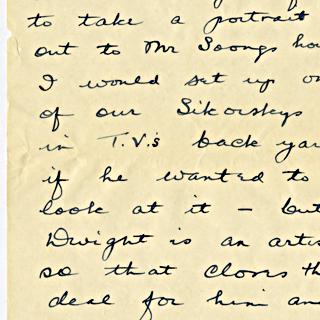 to take a portrait
out to Mr Soongs
I would set up
of our Sikorskys
in T.V.'s back
if he wanted to
look at it — but
Dwight is an
so that closes
deal for him